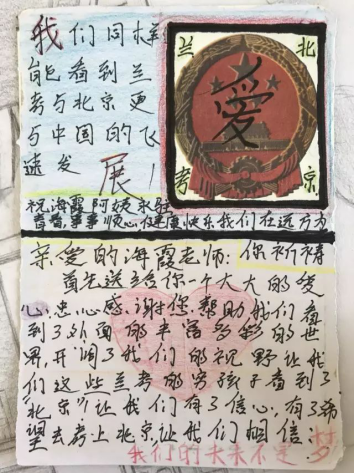 我们同样
能看到兰
考与北京更
与中国的飞
速发展!
兰 北
爱
考 京
祝海霞阿姨永驻
青春,事事顺心,健康快乐我们在远方为
你祈祷
亲爱的海霞老师:
首先送给你一个大大的爱
心,忠心感谢您帮助我们看
到了外面的丰富多彩的世
界,开阔了我们的视野让我
们这些兰考的穷孩子看到了
"北京"!让我们有了信心,有了希
望去考上北京让我们相信
我们的未来不是梦